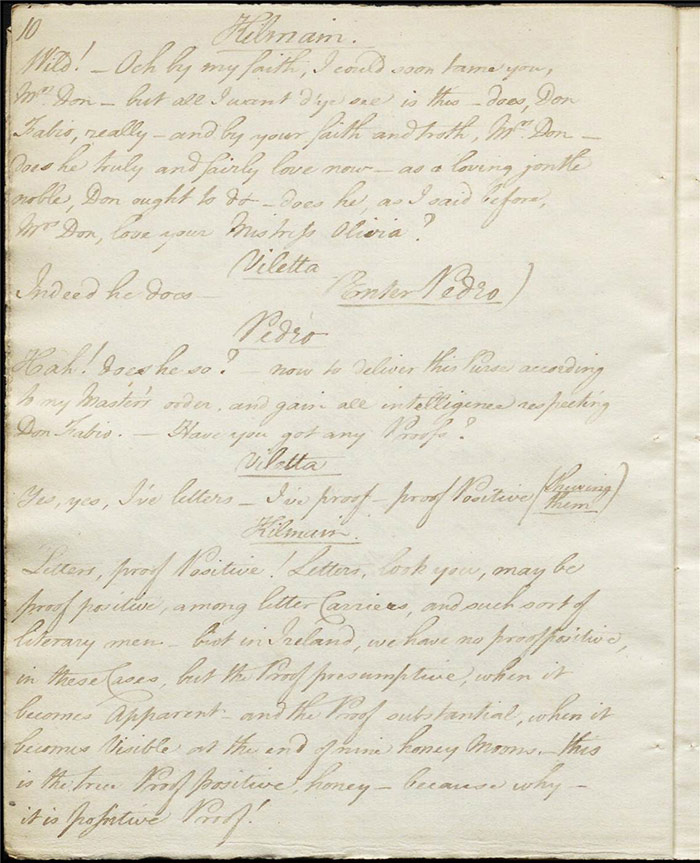 10
Kilmain.
Wild! – Och by my faith, I could soon tame you,
Mrs. Don – but all I want d'ye see is this – does, Don
Fabio, really – and by your faith and troth, Mrs. Don –
does he truly and fairly love now – as a loving jontle
noble, Don ought to do – does he, as I said before,
Mrs Don, love your Mistress Olivia?
Viletta
Indeed he does – (Enter Pedro)
Pedro
Hah! does he so? – now to deliver this Purse according
to my Master's order, and gain all intelligence respecting
Don Fabio. – Have you got any Proofs?
Viletta
Yes, yes, I've letters – I've proof – proof Positive (shewing
them)
Kilmain.
Letters, proof Positive! Letters, look you, may be
proof positive, among letter Carriers, and such sort of
literary men – but in Ireland, we have no proof positive,
in these Cases, but the Proof presumptive, when it
becomes Apparent – and the Proof substantial, when it
becomes Visible at the end of nine honey Moons – this
is the true Proof positive, honey – because why –
it is positive Proof!